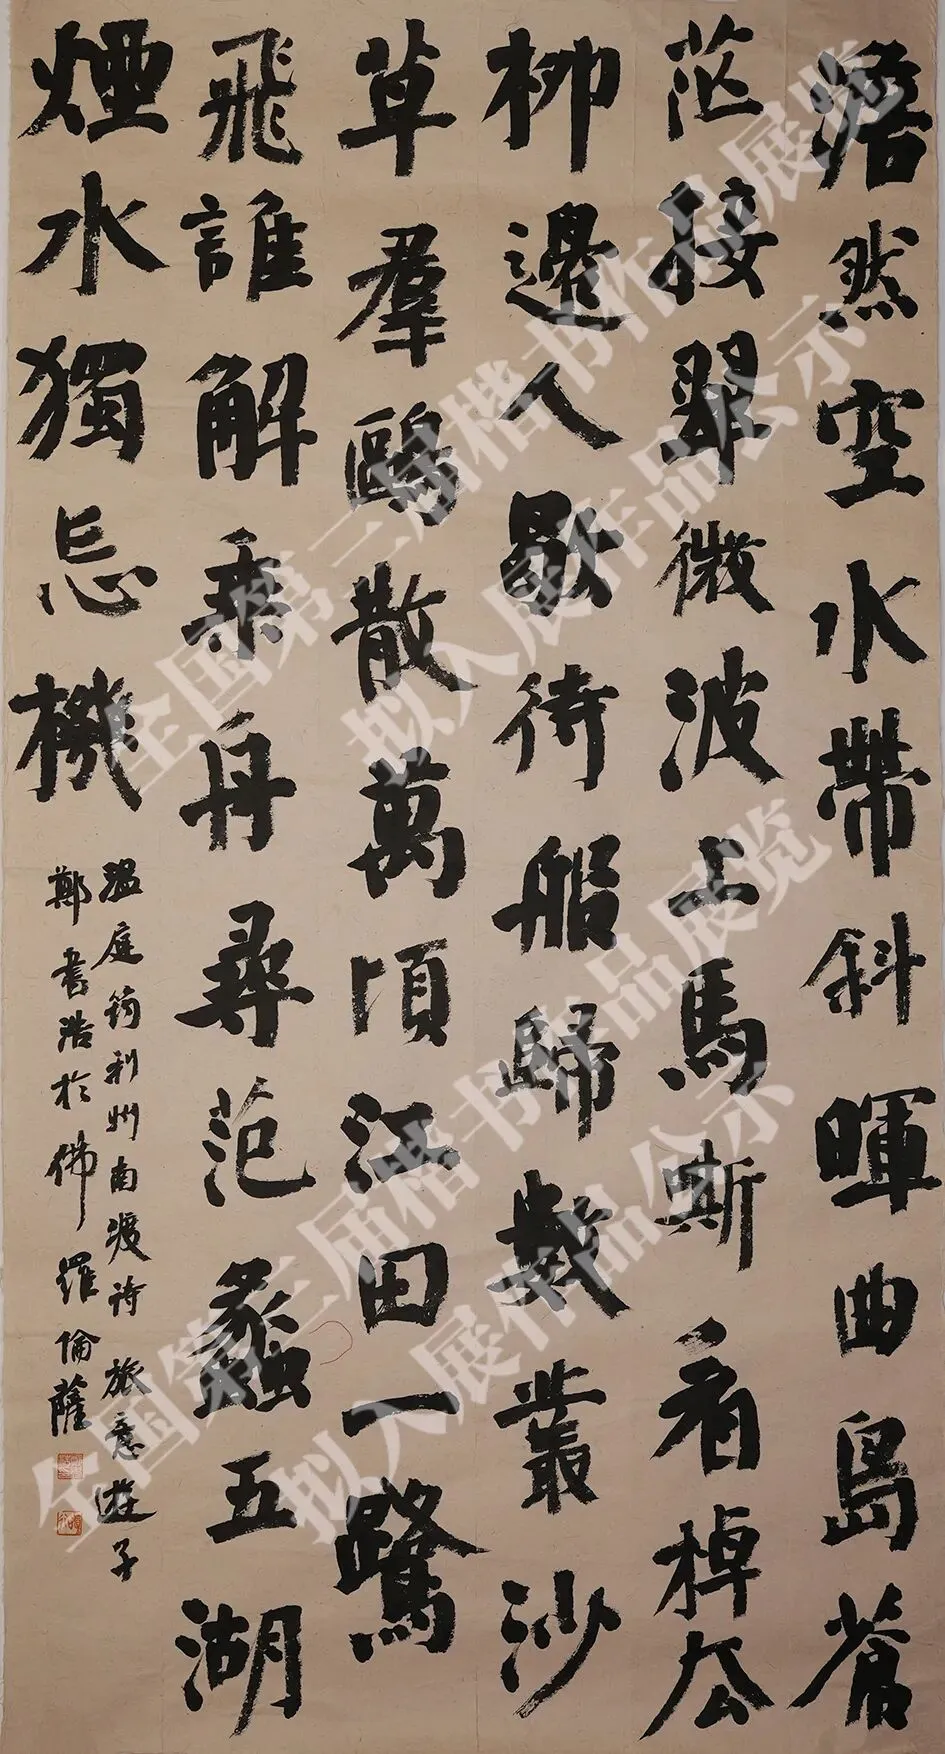 澹然空水帶斜暉曲島蒼
茫接翠微波上馬嘶看棹去
柳邊人歇待船歸數叢沙
草羣鷗散萬頃江田一鷺
飛誰解乘舟尋范蠡五湖
煙水獨忘機
温庭筠利州南渡詩 旅意遊子
鄭書浩於佛羅倫薩
全国第三届楷书作品展览
拟入展作品公示
全国第三届楷书作品展览
拟入展作品公示